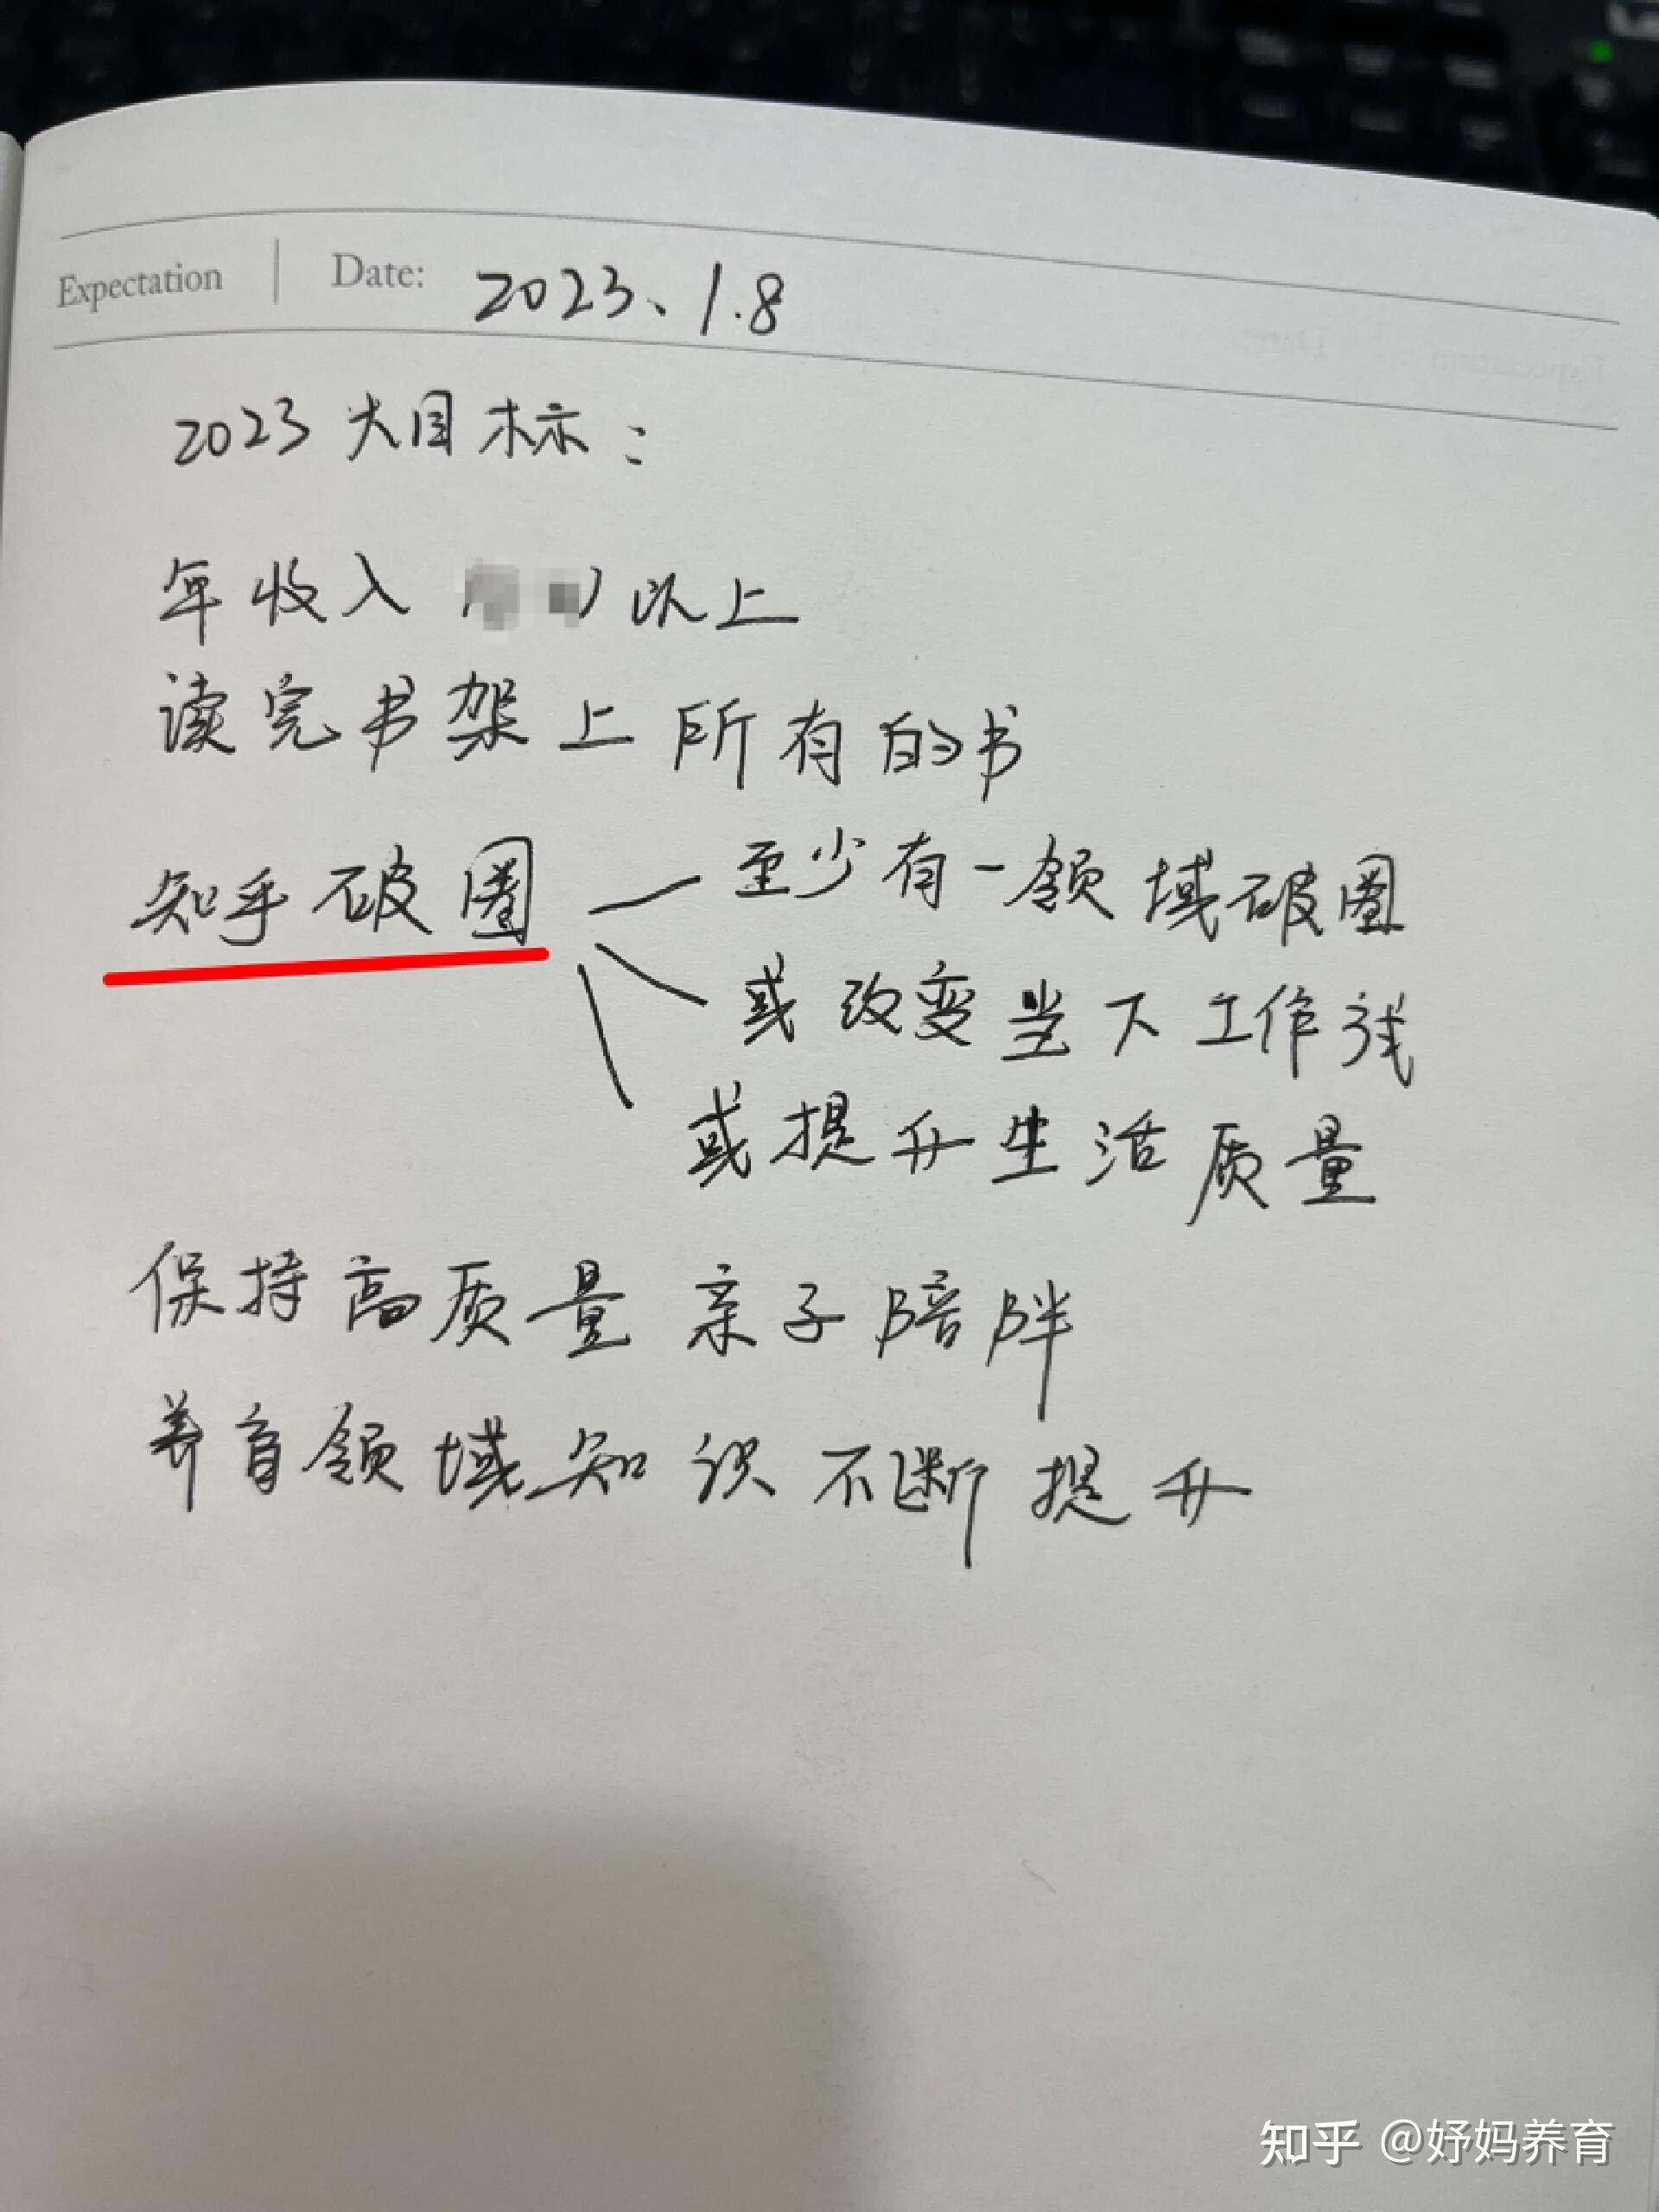 Expectation | Date: 2023、1.8
2023大目标：
年收入 以上
读完书架上所有的书
知乎破圈 — 至少有一领域破圈
或改变当下工作线
或提升生活质量
保持高质量亲子陪伴
养育领域知识不断提升
知乎 @妤妈养育